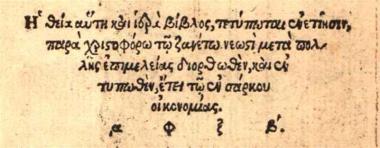 Ἡ θεία αὕτη καὶ ἱερὰ βίβλος, τετύπωται ἐνετίησιν,
παρὰ χριστοφόρω τῶ ζανέτω. νεωστὶ μετὰ πολ-
λῆς ἐπιμελείας διορθωθὲν, καὶ ἐν
τυπωθὲν, ἔτει τῶ ἐν σάρκου
οἰκονομίας.
α φ ξ β'.